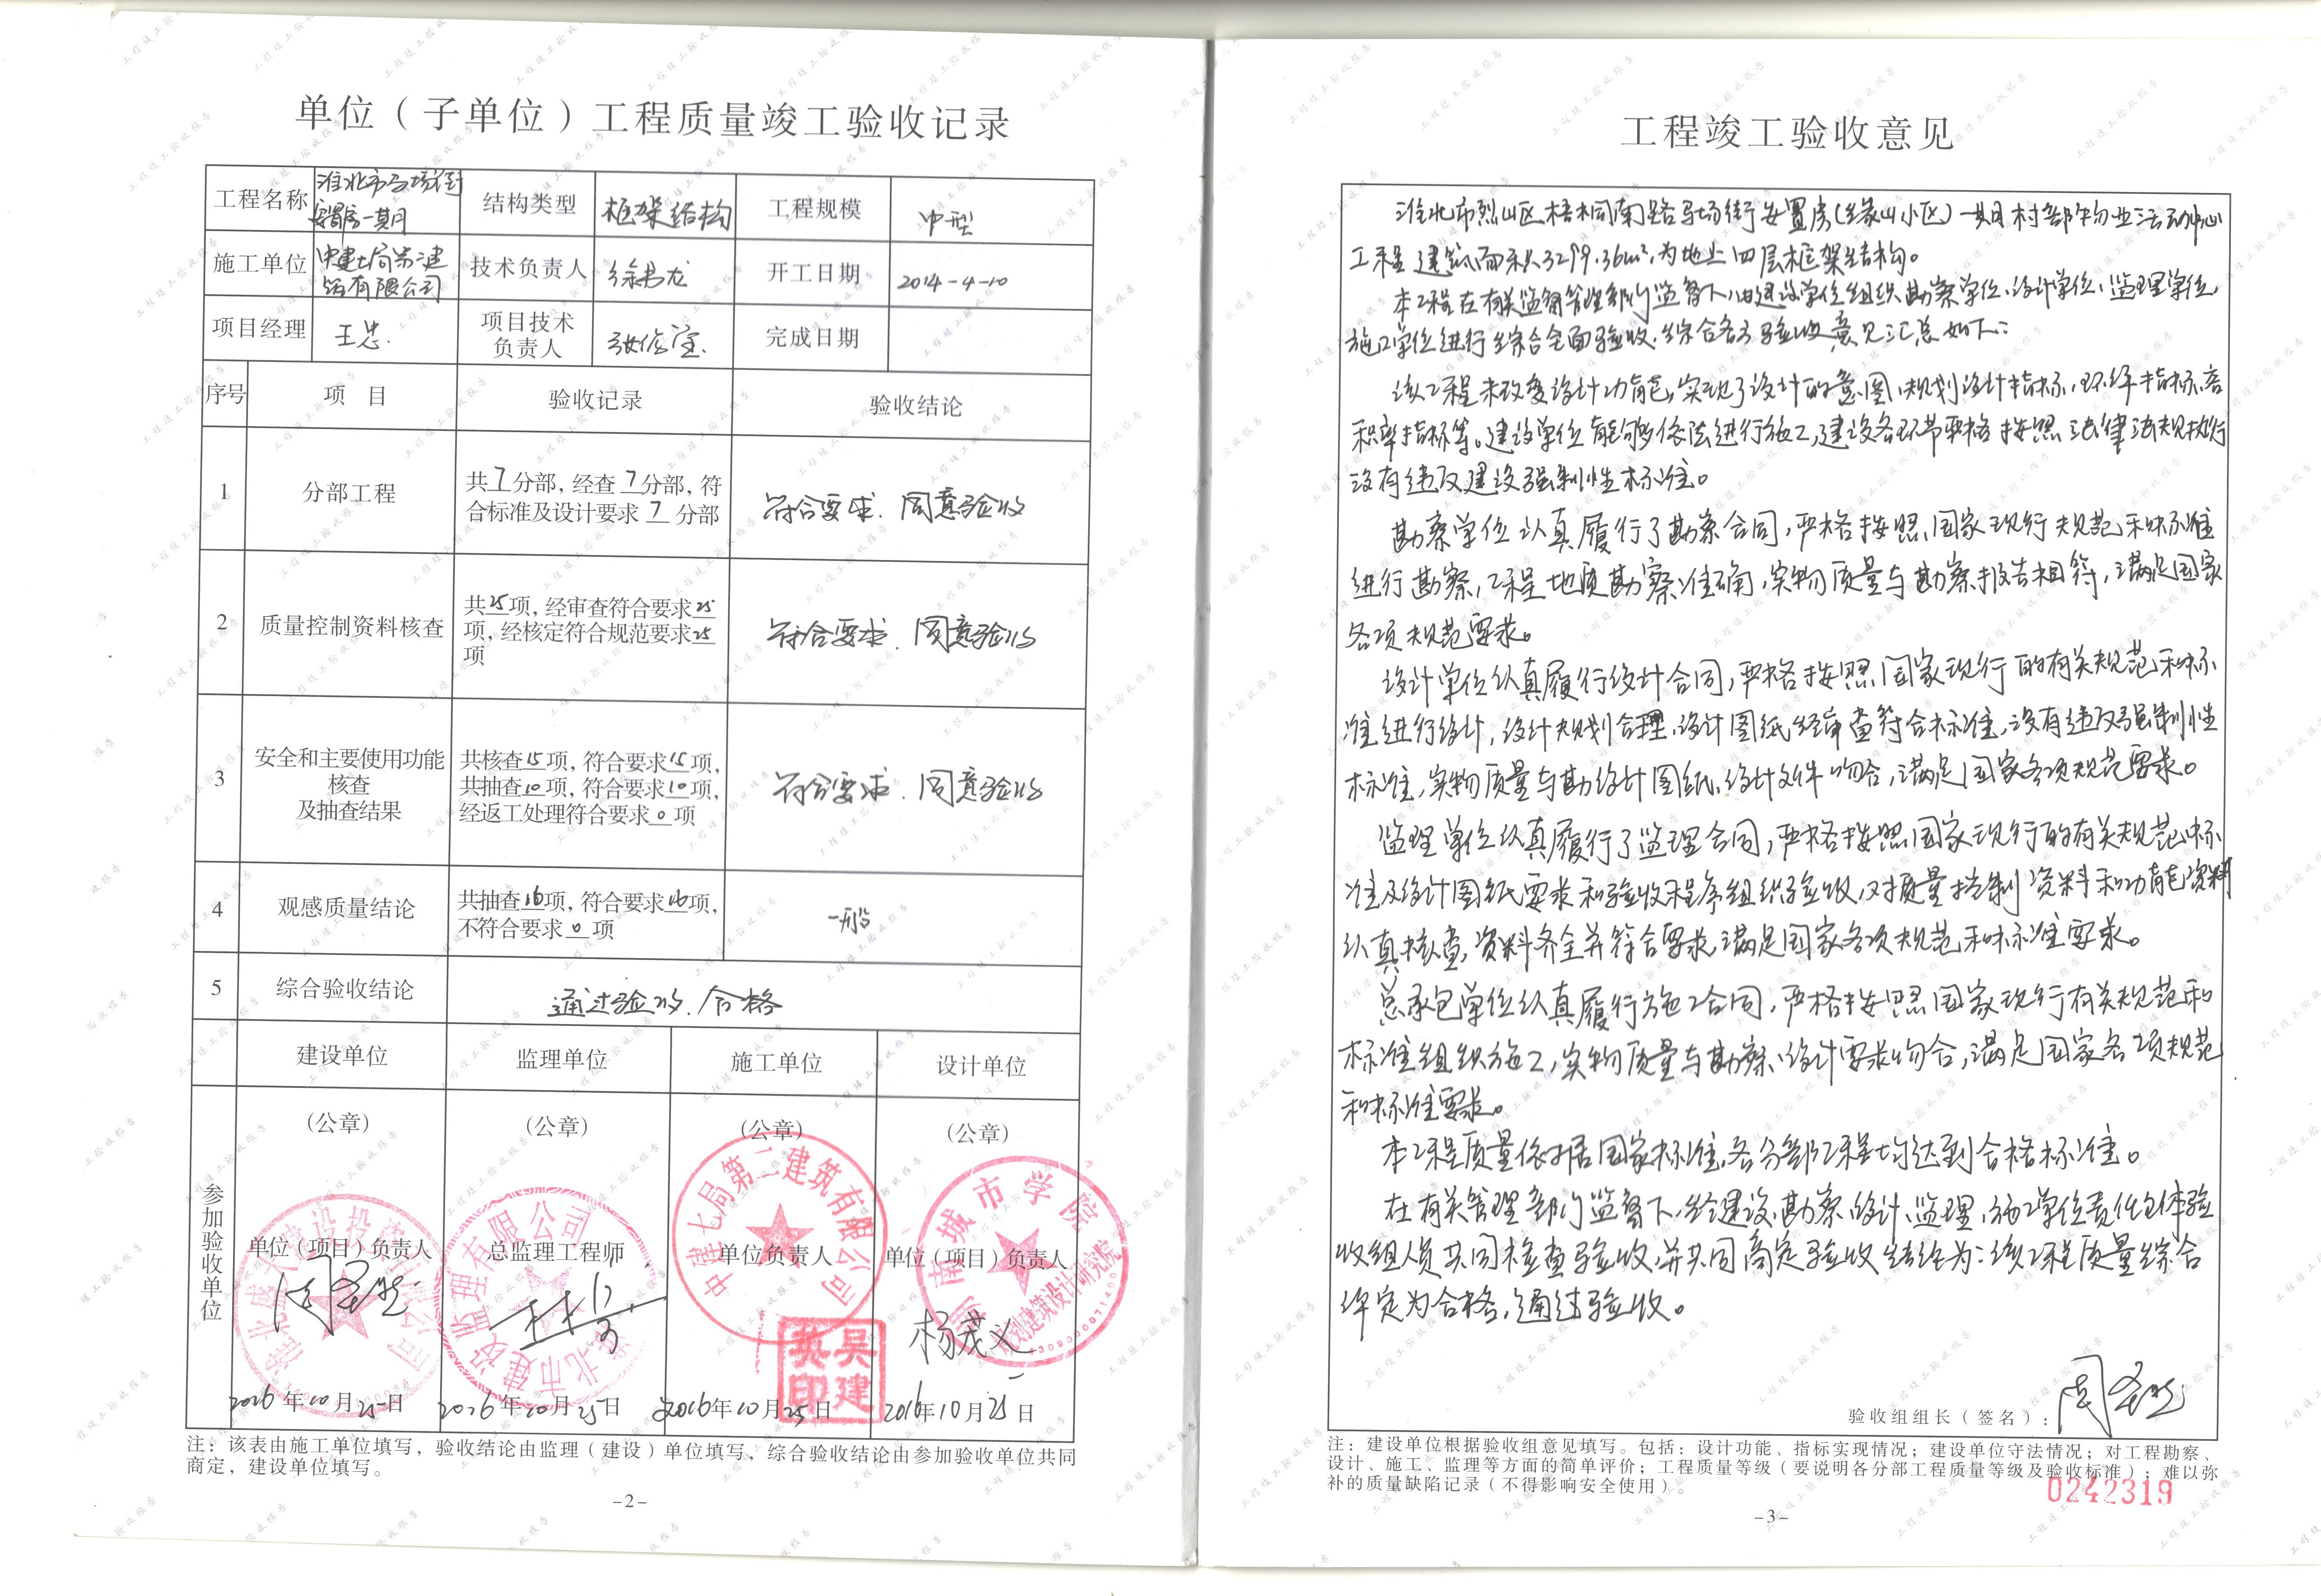 单位（子单位）工程质量竣工验收记录
工程名称 淮北市马场街安置房一期 结构类型 框架结构 工程规模 中型
施工单位 中建七局第二建筑有限公司 技术负责人 徐书龙 开工日期 2014-4-10
项目经理 王忠 项目技术负责人 完成日期
序号 项 目 验收记录 验收结论
1 分部工程 共7分部, 经查7分部, 符合标准及设计要求7分部 符合要求. 同意验收
2 质量控制资料核查 共25项, 经审查符合要求25项, 经核定符合规范要求25项 符合要求. 同意验收
3 安全和主要使用功能核查及抽查结果 共核查15项, 符合要求15项, 共抽查10项, 符合要求10项, 经返工处理符合要求0项 符合要求. 同意验收
4 观感质量结论 共抽查16项, 符合要求16项, 不符合要求0项 一般
5 综合验收结论 通过验收. 合格
参加验收单位
建设单位 监理单位 施工单位 设计单位
(公章) (公章) (公章) (公章)
中建七局第二建筑有限公司
湖南城市学院规划建筑设计研究院
淮北市建安监理有限公司
单位（项目）负责人 总监理工程师 单位负责人 单位（项目）负责人
杨茂义
吴建英印
2016年10月25日 2016年10月25日 2016年10月25日 2016年10月25日
注：该表由施工单位填写，验收结论由监理（建设）单位填写，综合验收结论由参加验收单位共同
商定，建设单位填写。
-2-
工程竣工验收意见
淮北市烈山区梧桐南路马场街安置房(缘山小区)一期村部物业活动中心
工程建筑面积3299.36m²,为地上四层框架结构。
本工程在有关监督管理部门监督下,由建设单位组织勘察单位、设计单位、监理单位、
施工单位进行综合全面验收.综合各方验收意见汇总如下:
该工程未改变设计功能,实现了设计的意图、规划设计指标、环保指标、容
积率指标等。建设单位能够依法进行施工,建设各环节严格按照法律法规执行
没有违反建设强制性标准。
勘察单位认真履行了勘察合同,严格按照国家现行规范和标准
进行勘察,工程地质勘察准确,实物质量与勘察报告相符,满足国家
各项规范要求。
设计单位认真履行设计合同,严格按照国家现行的有关规范和标
准进行设计,设计规划合理,设计图纸经审查符合标准,没有违反强制性
标准,实物质量与勘设计图纸、设计文件吻合,满足国家各项规范要求。
监理单位认真履行了监理合同,严格按照国家现行的有关规范标
准及设计图纸要求和验收程序组织验收,对质量控制资料和功能资料
认真核查,资料齐全并符合要求,满足国家各项规范和标准要求。
总承包单位认真履行施工合同,严格按照国家现行有关规范和
标准组织施工,实物质量与勘察、设计要求吻合,满足国家各项规范
和标准要求。
本工程质量依据国家标准,各分部工程均达到合格标准。
在有关管理部门监督下,经建设、勘察、设计、监理、施工单位责任主体验
收组人员共同检查验收,并共同商定验收结论为:该工程质量综合
评定为合格,通过验收。
验收组组长（签名）:
注：建设单位根据验收组意见填写。包括：设计功能、指标实现情况；建设单位守法情况；对工程勘察、
设计、施工、监理等方面的简单评价；工程质量等级（要说明各分部工程质量等级及验收标准）；难以弥
补的质量缺陷记录（不得影响安全使用）。
0242319
-3-